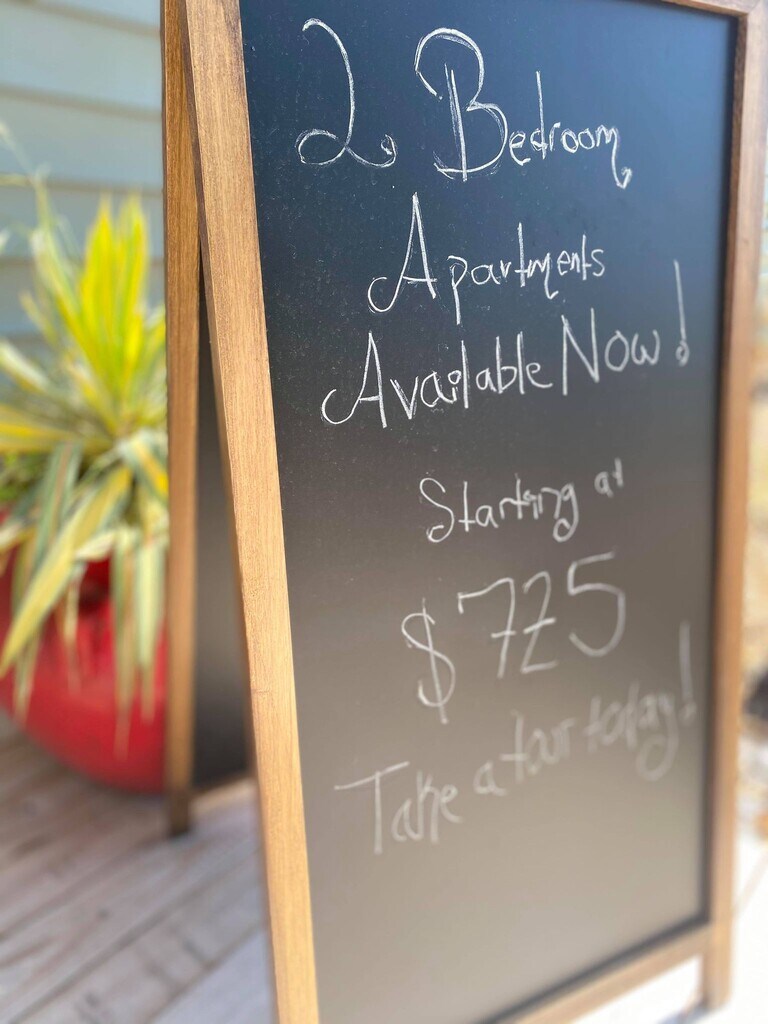 2 Bedroom
Apartments
Available Now!
Starting at
$725
Take a tour today!